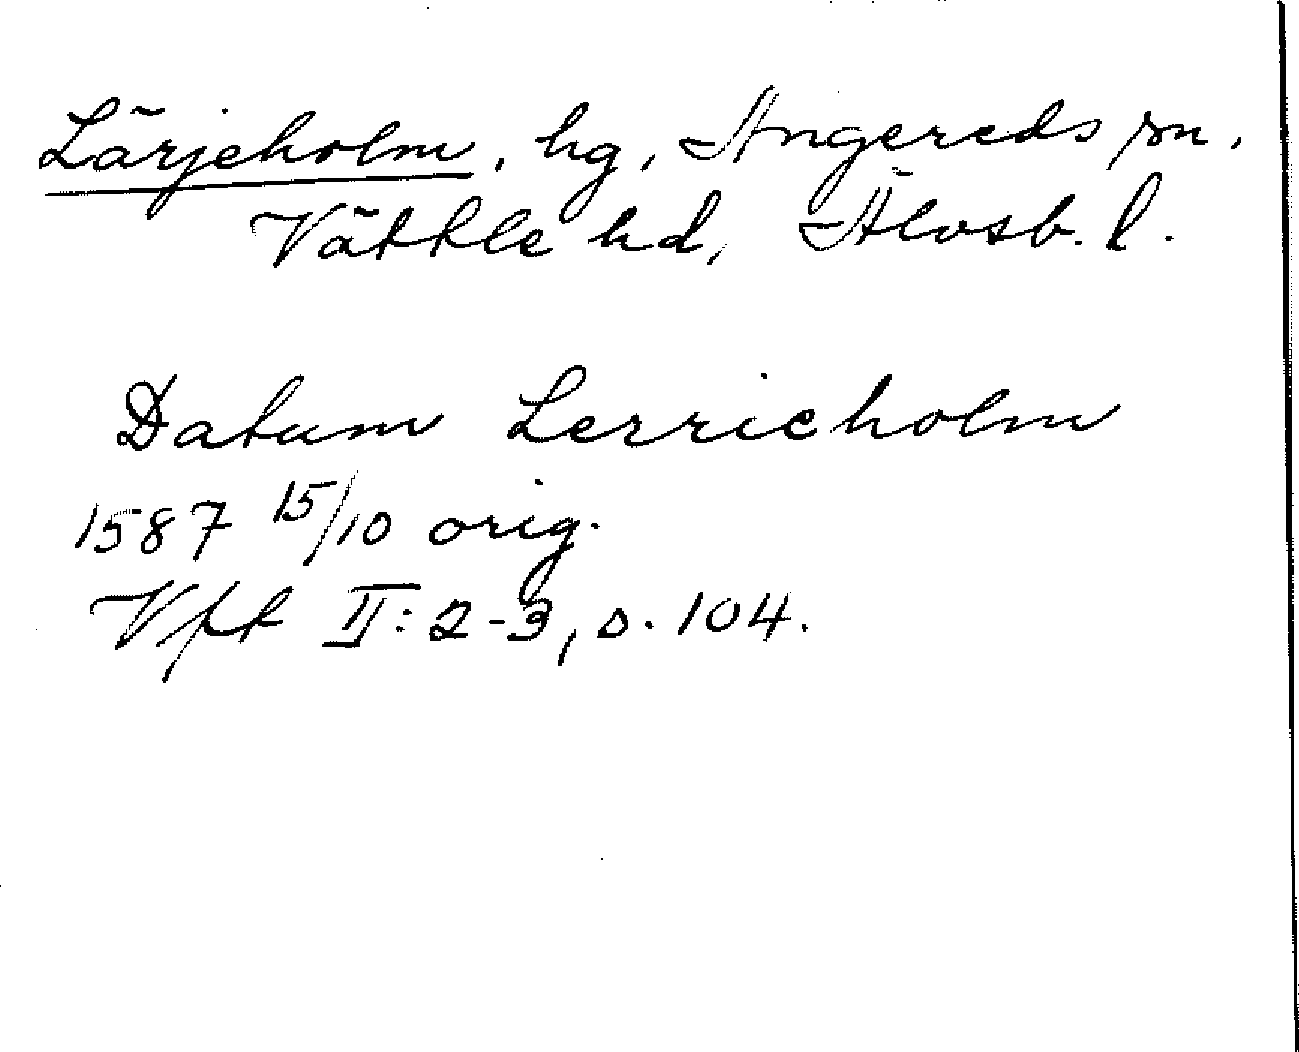 Lärjeholm, hg, Angereds sn.
Vättle hd, Älvsb. l.
Datum Lerrieholm
1587 15/10 orig.
Vft II: 2-3, s. 104.